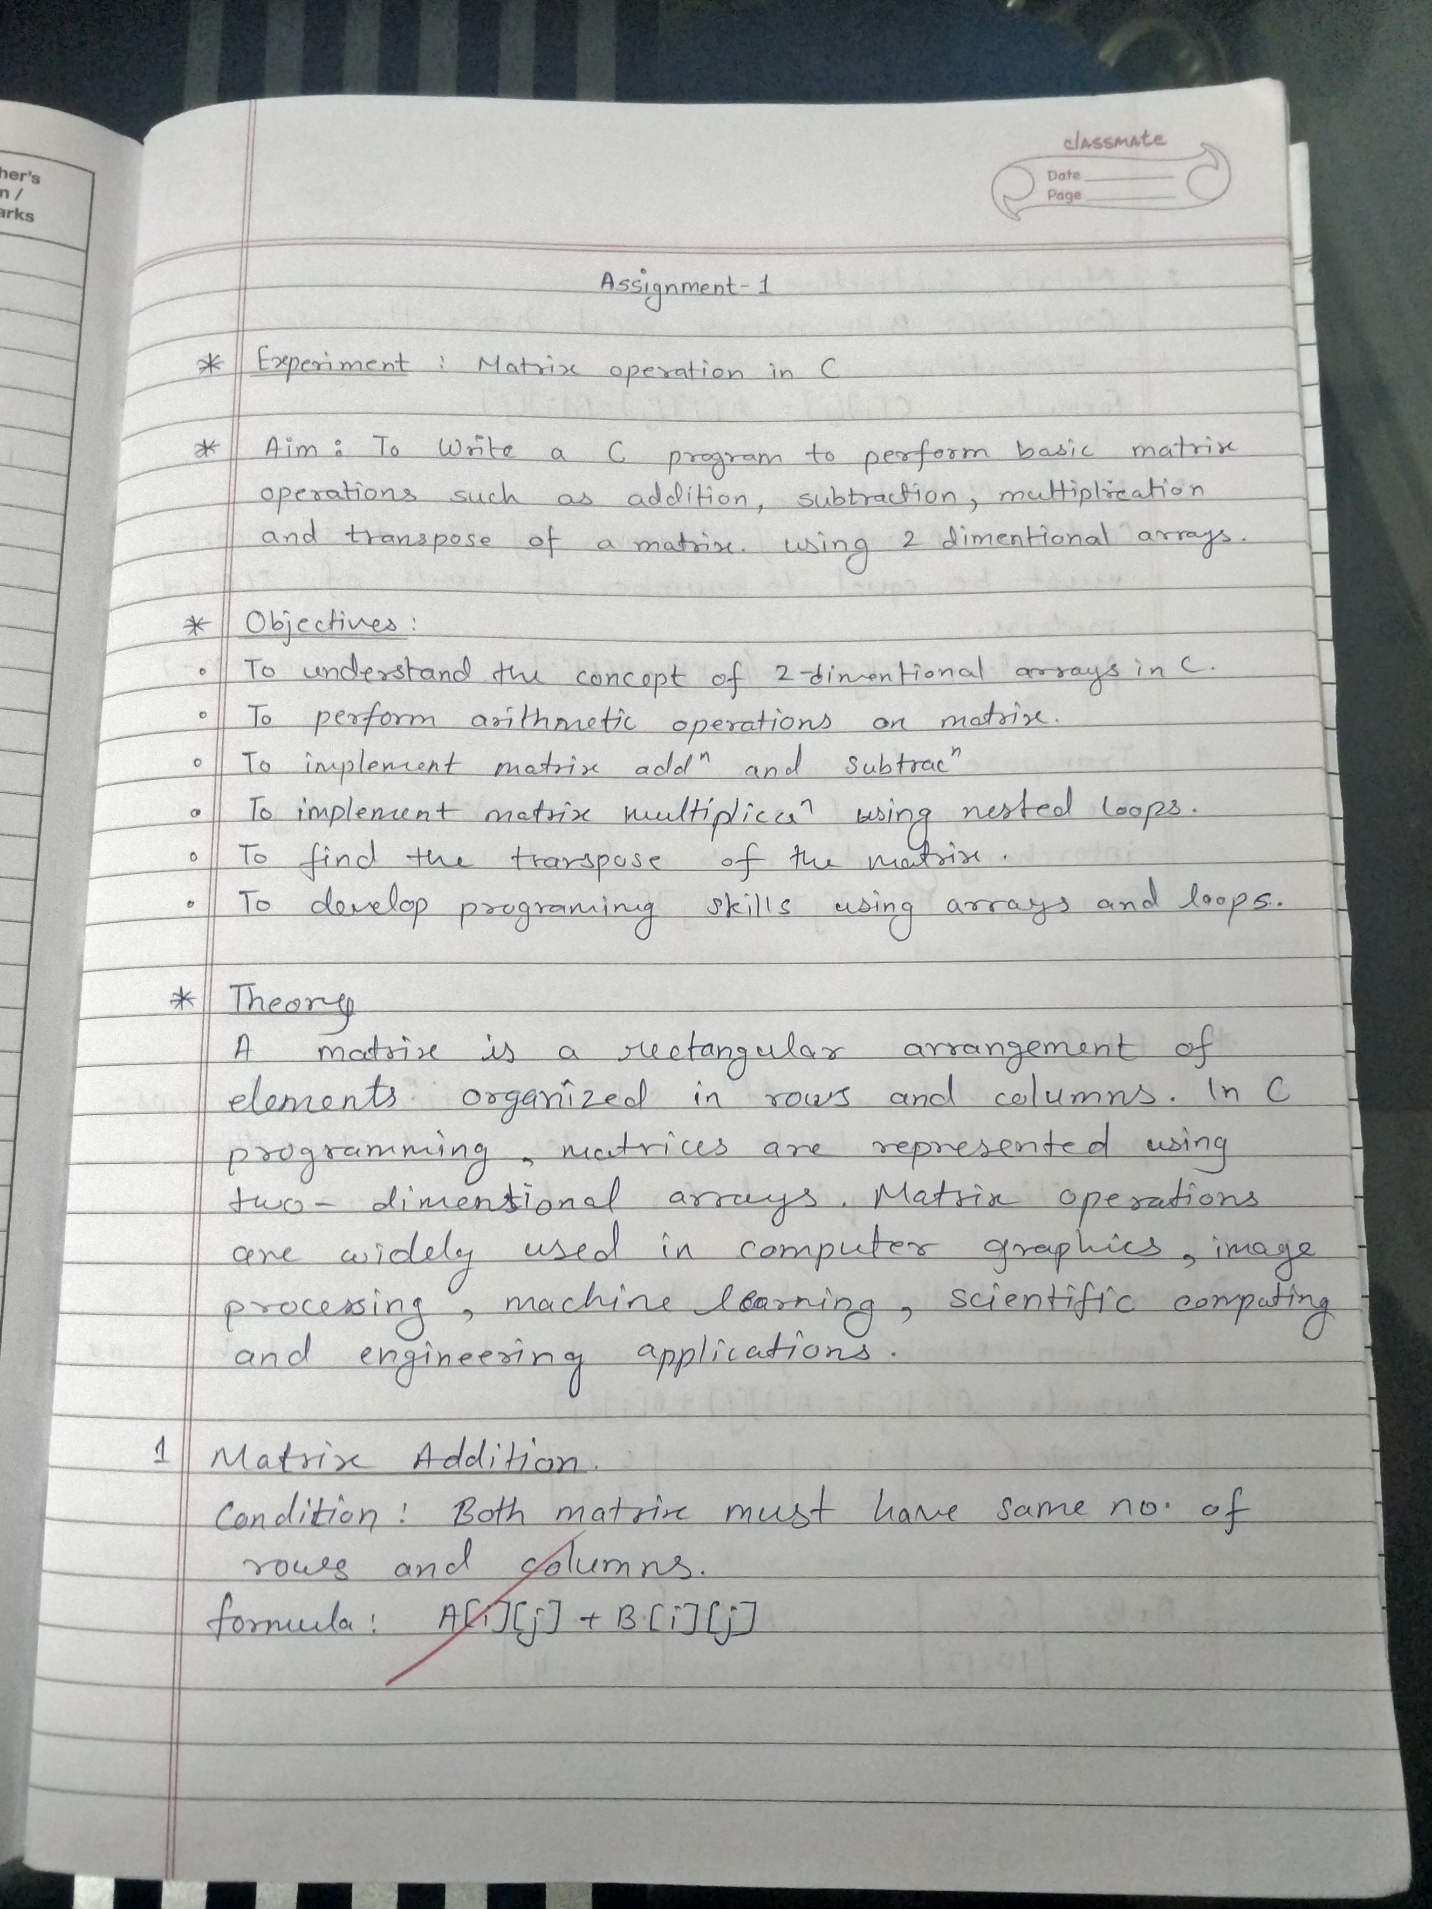 her's
n /
arks
classmate
Date
Page
Assignment-1
* Experiment : Matrix operation in C
* Aim : To Write a C program to perform basic matrix
operations such as addition, subtraction, multiplication
and transpose of a matrix. using 2 dimentional arrays.
* Objectives :
◦ To understand the concept of 2-dimentional arrays in C.
◦ To perform arithmetic operations on matrix.
◦ To implement matrix addⁿ and subtracⁿ
◦ To implement matrix multiplicaⁿ using nested loops.
◦ To find the transpose of the matrix.
◦ To develop programing skills using arrays and loops.
* Theory
A matrix is a rectangular arrangement of
elements organized in rows and columns. In C
programming, matrices are represented using
two-dimensional arrays. Matrix operations
are widely used in computer graphics, image
processing, machine learning, scientific computing
and engineering applications.
1 Matrix Addition.
Condition : Both matrix must have same no. of
rows and columns.
formula : A[i][j] + B[i][j]